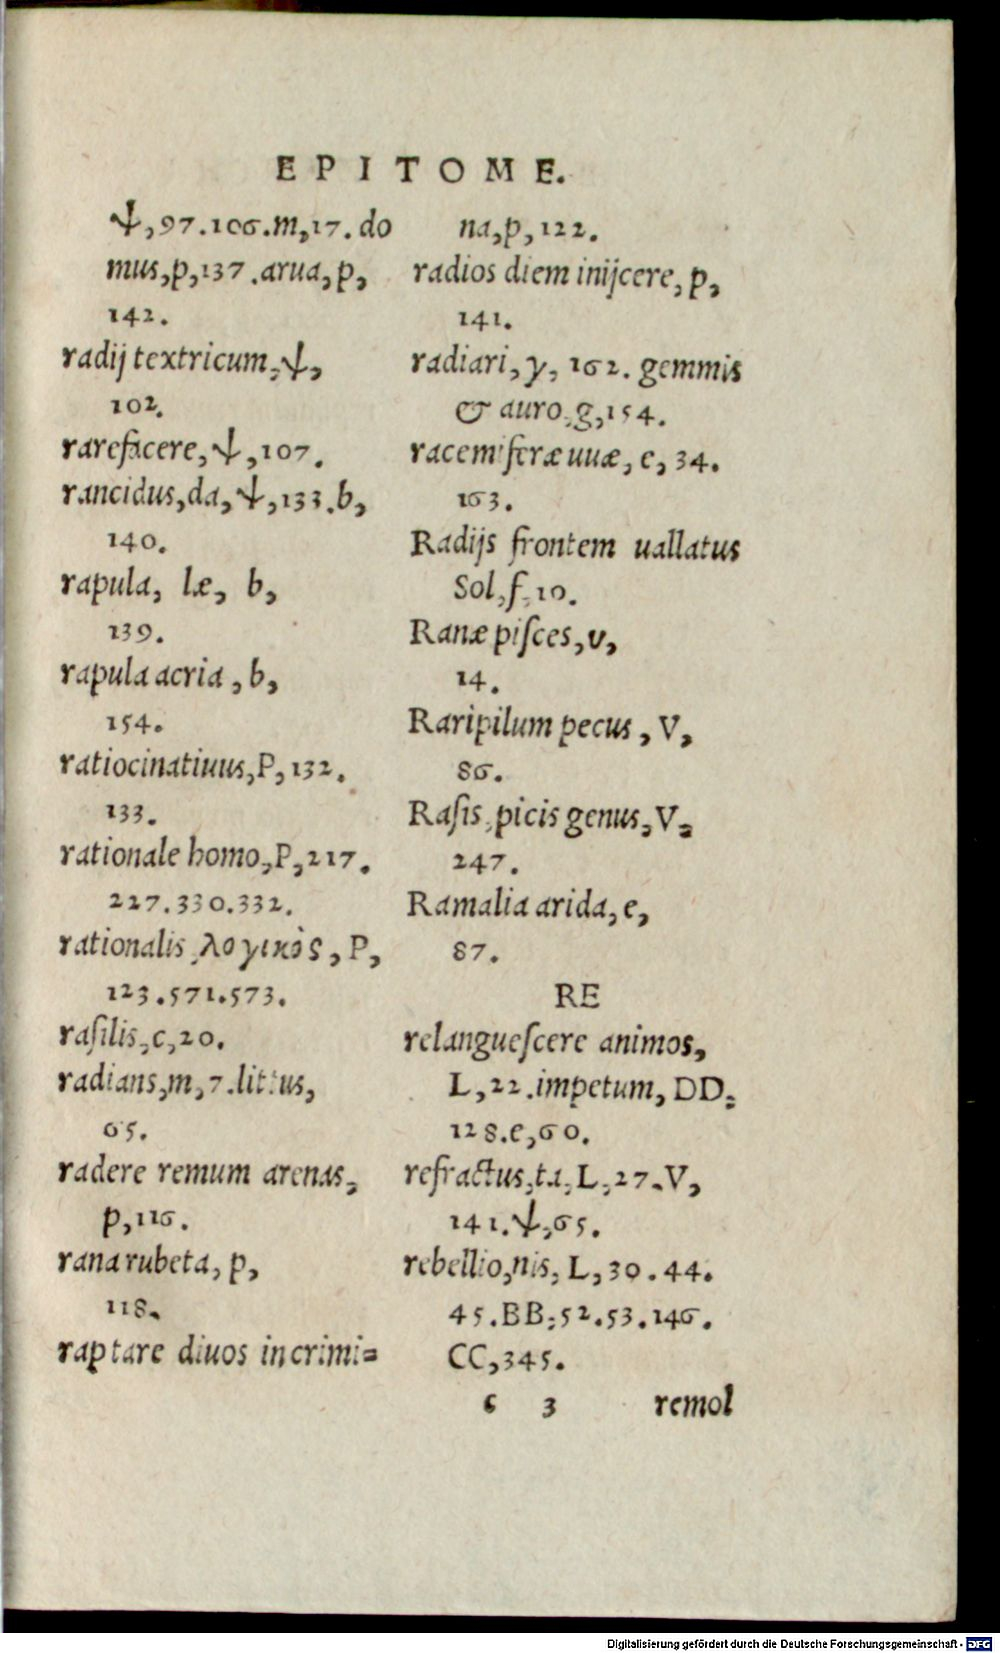 EPITOME.
ѱ, 97.106.m,17. do
mus,p,137.arua,p,
142.
radij textricum,ѱ,
102.
rarefacere,ѱ,107.
rancidus,da,ѱ,133.b,
140.
rapula, læ, b,
139.
rapula acria, b,
154.
ratiocinatiuus,P,132.
133.
rationale homo,P,217.
227.330.332.
rationalis,λογικὸς, P,
123.571.573.
raſilis,c,20.
radians,m,7.littus,
65.
radere remum arenas,
p,116.
rana rubeta, p,
118.
raptare diuos in crimi=
na,p,122.
radios diem inijcere, p,
141.
radiari, y, 162. gemmis
& auro,g,154.
racemiferæ uuæ, e, 34.
163.
Radijs frontem uallatus
Sol,f,10.
Ranæ piſces,v,
14.
Raripilum pecus, V,
86.
Raſis,picis genus,V,
247.
Ramalia arida,e,
87.
RE
relangueſcere animos,
L,22.impetum, DD,
128.e,60.
refractus,ta,L,27.V,
141.ѱ,65.
rebellio,nis, L,30.44.
45.BB,52.53.146.
CC,345.
c 3 remol
Digitalisierung gefördert durch die Deutsche Forschungsgemeinschaft - DFG